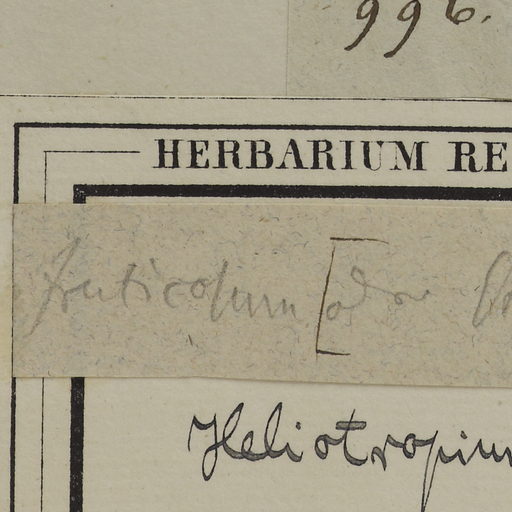 996.
HERBARIUM RE
fruticosum [odor
Heliotropium